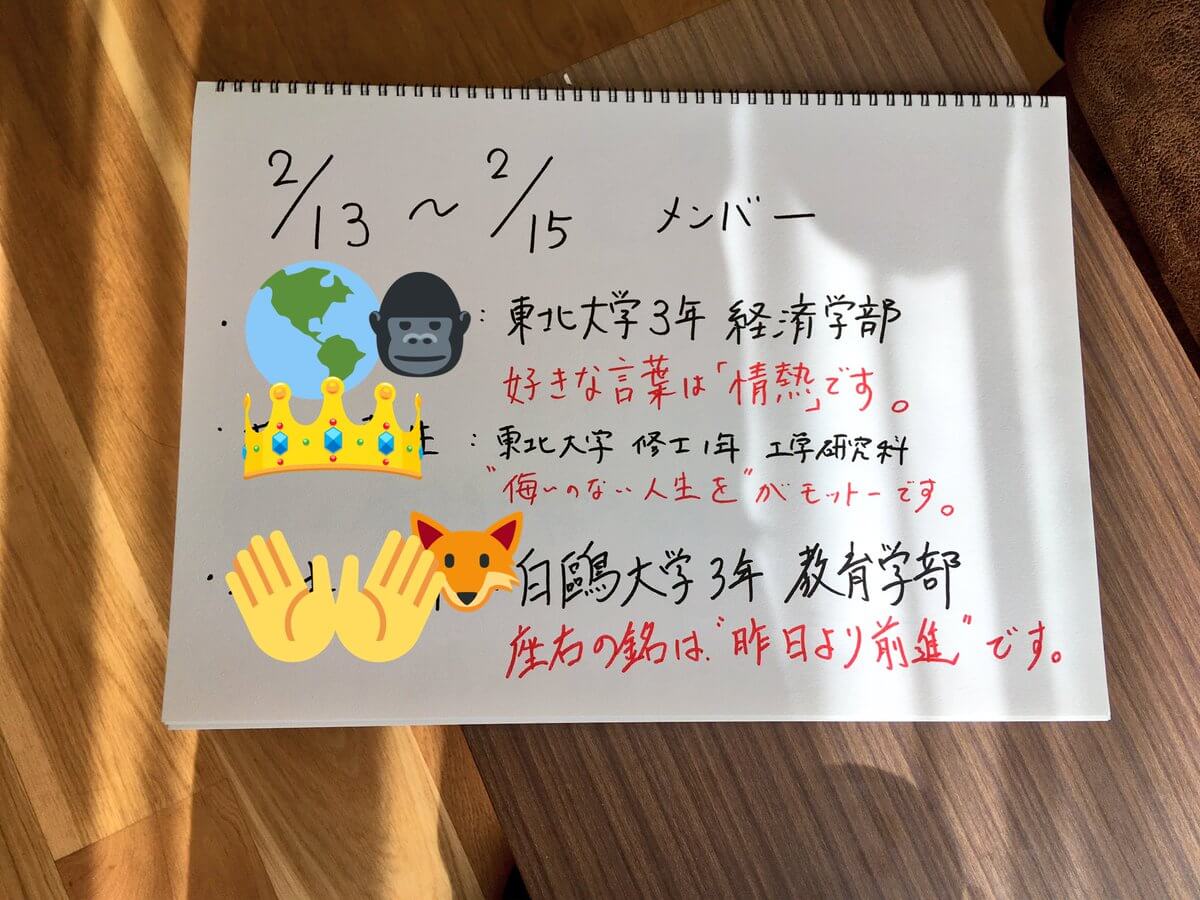 2/13 ~ 2/15 メンバー
・ : 東北大学3年 経済学部
好きな言葉は「情熱」です。
・ 生 : 東北大学 修士1年 工学研究科
"侮いのない人生を"がモットーです。
・ : 白鷗大学3年 教育学部
座右の銘は、"昨日より前進"です。